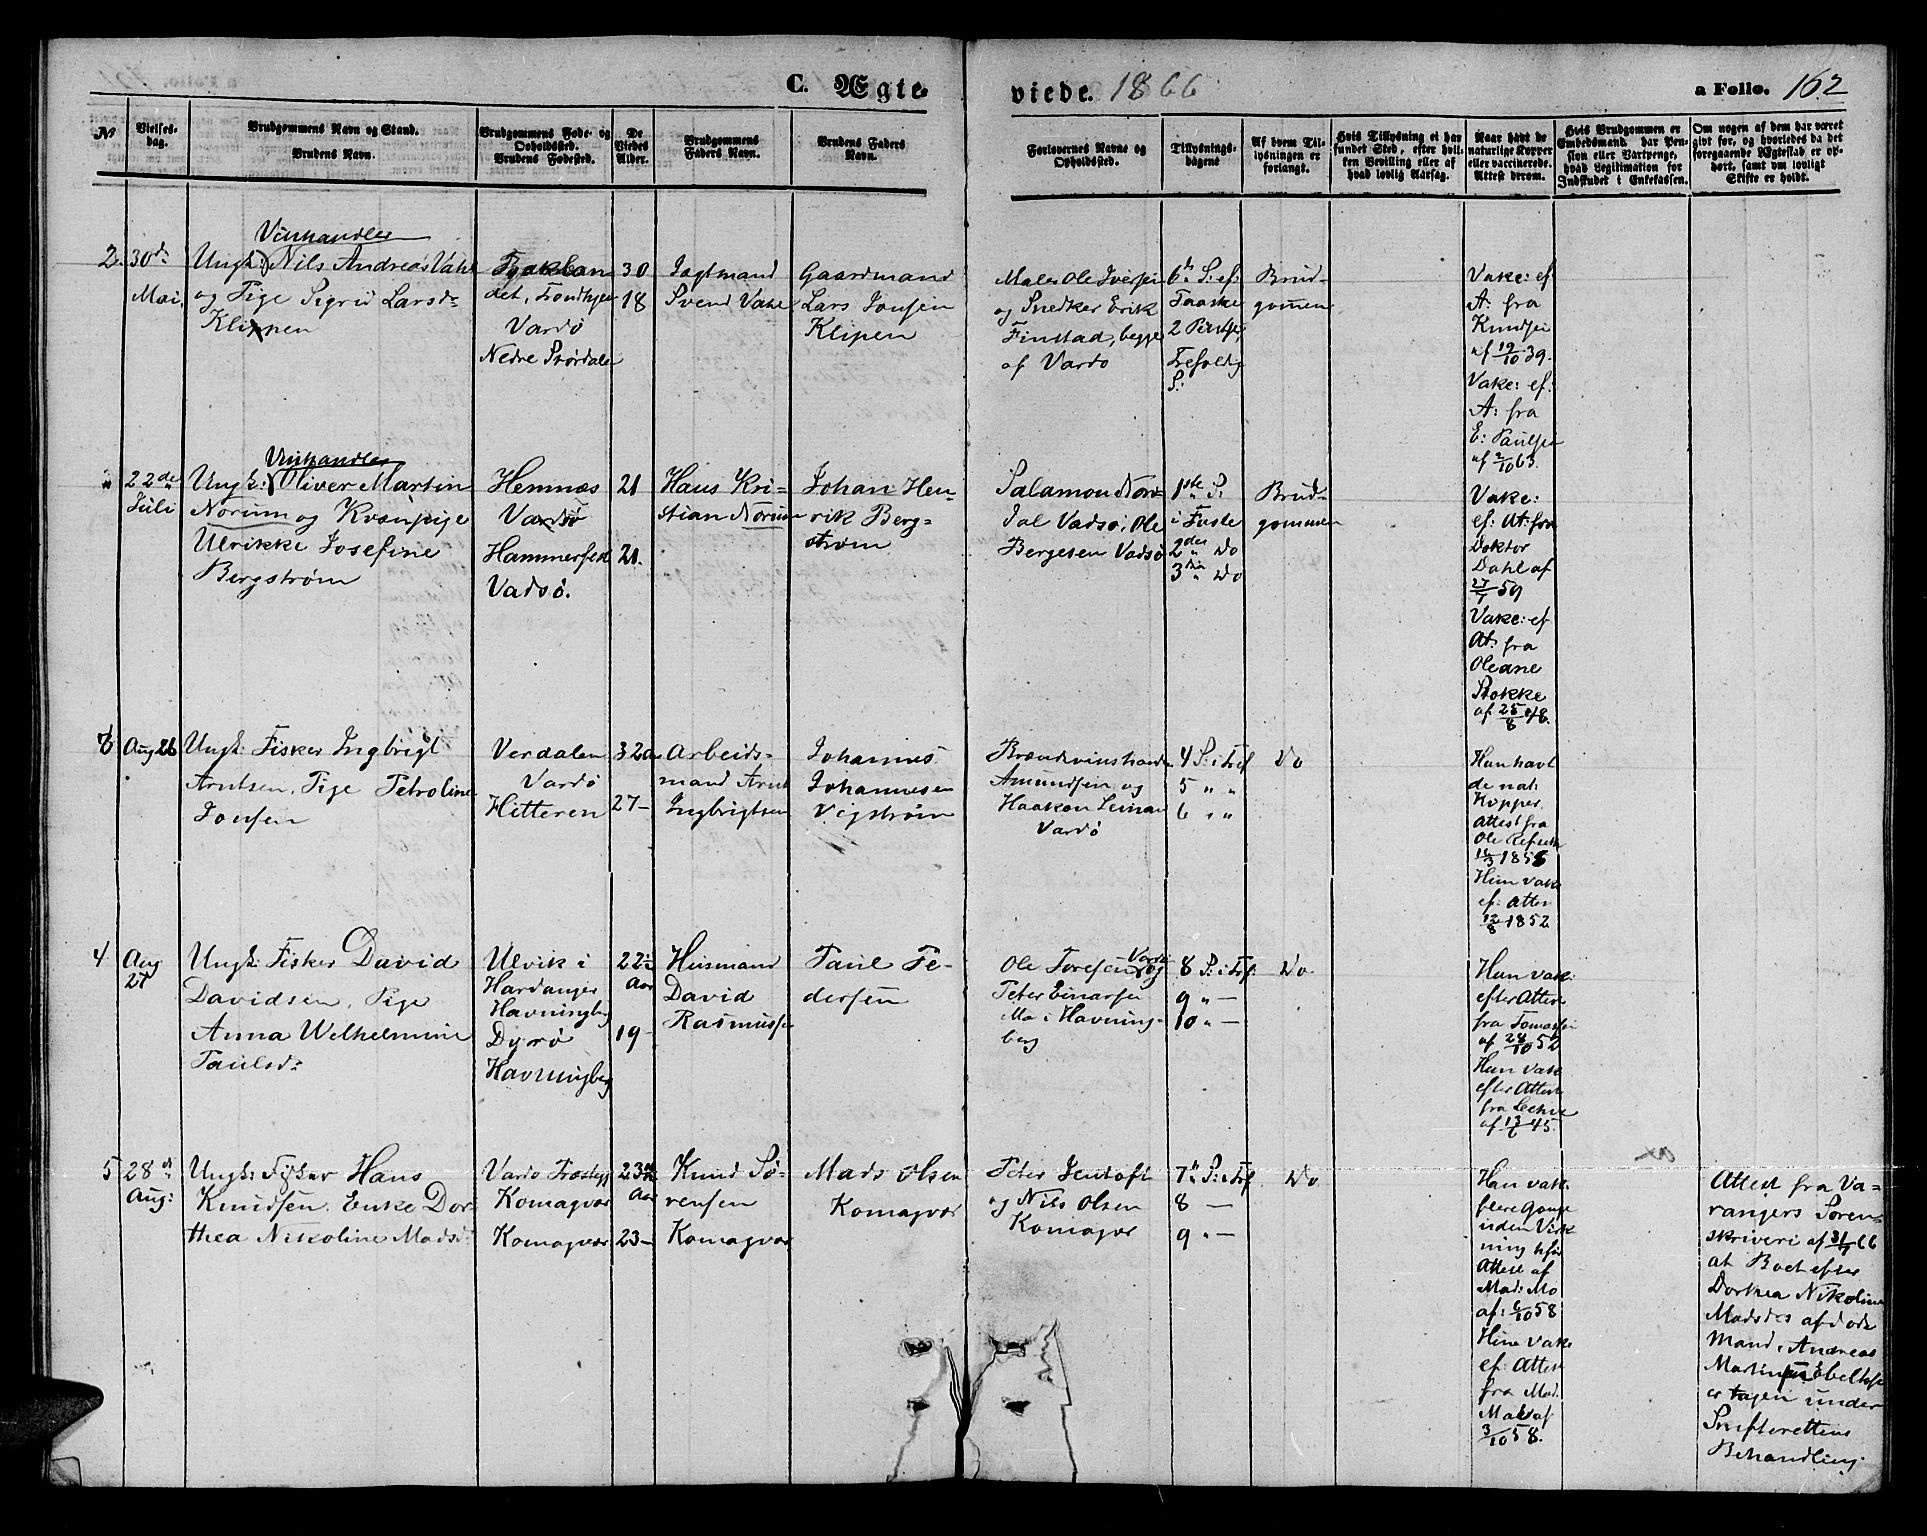 C. Ægte
viede. 1866
a Follo. 162
No
Vielses-
dag.
Brudgommens Navn og Stand.
Brudens Navn.
Brudgommens Føde- og
Opholdssted.
Brudens Fødested.
De
Viedes
Alder.
Brudgommens
Faders Navn.
Brudens Faders
Navn.
Forlovernes Navne og
Opholdssted.
Tillysnings-
dagene
Af hvem Til-
lysningen er
forlangt.
Hvis Tillysning ei har
fundet Sted, efter hvil-
ken Bevilling eller af
hvad lovlig Aarsag.
Naar havt de
naturlige Kopper
eller vaccinerede.
Attest derom.
Hvis Brudgommen er
Embedsmand, har Pen-
sion eller Vartpenge,
hvad Legitimation for
Indskudet i Enkekassen.
Om nogen af dem har været
givt før, og hvorledes da det
foregaaende Ægteskab er op-
hørt, samt om lovligt
Skifte er holdt.
2. 30de
Mai,
Vinhandler
Ungk: Nils Andreas Vahl
og Pige Sigrid Larsd:
Klippen
Bakklan
det, Trondhjem
Vardø
Nedre Størdalen
30
18
Jagtmand
Svend Vahl
Gaardmand
Lars Jonsen
Klipen
Maler Ole Iversen
og Snedker Erik
Finstad, begge
af Vardø
6te S: ef:
Paaske
2 Pintse,
Trefoldig
S:
Brud-
gommen
Vakc: ef
A: fra
Knudsen
af 19/10 39.
Vakc: ef:
A: fra
E: Paulsen
af 2/10 63.
" 22de
Juli
Vinhandler
Ungk: Oliver Martin
Norum og Kvænpige
Ulrikke Josefine
Bergstrøm
Hemnæs
Vardsø
Hammerfest
Vadsø.
21
21.
Hans Kri-
stian Norum
Johan Hen-
rik Berg-
strøm
Salamon Nor-
dal Vadsø, Ole
Bergesen Vadsø
1ste S:
i Faste
2den " Do
3die " Do
Brud-
gommen
Vakc:
ef: At: fra
Doktor
Dahl af
27/7 59
Vakc: ef
At: fra
Oleane
Stokke
af 25/8 48.
3 Aug 26
Ungk: Fisker Ingbrigt
Arntsen, Pige Petroline
Jonsen
Verdalen
Vardø
Hitteren
32 Aar
27 —
Arbeids-
mand Arnt
Ingbrigtsen
Johannes
Johannesen
Vigstrøm
Brændevinshandler
Amundsen og
Haakon Leinan
Vardø
4 S: i Tref
5 " "
6 " "
Do
Hun havt
de nat:
Kopper.
Attest fra
Ole Refseth
16/3 1856
Hun vakc
ef: Attest
12/8 1852
4 Aug
27
Ungk: Fisker David
Davidsen, Pige
Anna Welhelmine
Paulsd:
Ulvik i
Hardanger
Havningberg
Dyrø
Havningberg
22½
Aar
19 —
Husmand
David
Rasmussen
Paul Pe-
dersen
Ole Toresen Vardø og
Peter Einarsen
Mo i Havning-
berg
8 S: i Tref:
9 " —
10 " —
Do
Han vakc:
efter Attest
fra Tomassen
af 28/10 52
Hun vakc
efter Attest
fra Lekve
af 13/6 45.
5 28de
Aug:
Ungk: Fisker Hans
Knudsen. Enke Dor-
thea Nikoline Madsd:
Vardø Præstegj
Komagvær
Komagvær
23¾
Aar
23 —
Knud Sø-
rensen
Komagvær
Mads Olsen
Komagvær
Peter Jentoft
og Nils Olsen
Komagvær
7de S: i Tref
8 —
9 " —
Do
Han vakc
flere Gange
uden Virk-
ning ifør
Attest af
Mad: Mo
af: 6/10 58
Hun vakc
ef: Attest
fra Mad.
Mo af
3/10 58.
Attest fra Va-
rangers Soren-
skriveri af 31/7 66
at Boet efter
Dorthea Nikoline
Madsdes afdøde
Mand, Andreas
Martinsen Ebeltoft
er tagen under
Skifterettens
Behandling